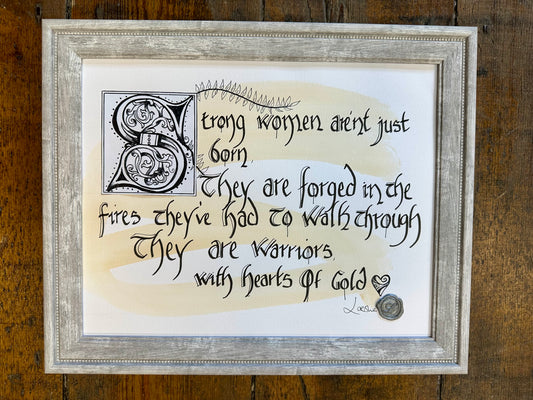 Strong women aren't just
born.
They are forged in the
fires they've had to walk through
They are warriors
with hearts of Gold